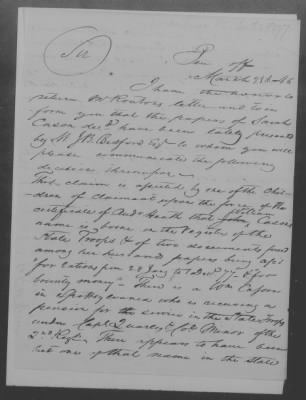 Sir
Pen Off
March
I have the honor to
return Mr letter and to in
form you that the papers of Sarah
Cason decd have been lately presented
by M. J. B. Bedford Esqr to whom you will
please communicate the following
decision thereupon
This claim is asserted by one of the Chil
dren of claimant upon the force of the
certificate of Aud Heath that William Cason's
name is borne on the Register of the
State Troops & of two documents found
among her husband papers being
for rations from 22 Jany to 77 &
bounty money - There is a Wm Cason
in Spottsylvania who is receiving a
pension for the service in the State Troops
under Capt Quarles & Col Minor of the
2nd Regt. There appears to have been
but one of that name in the State